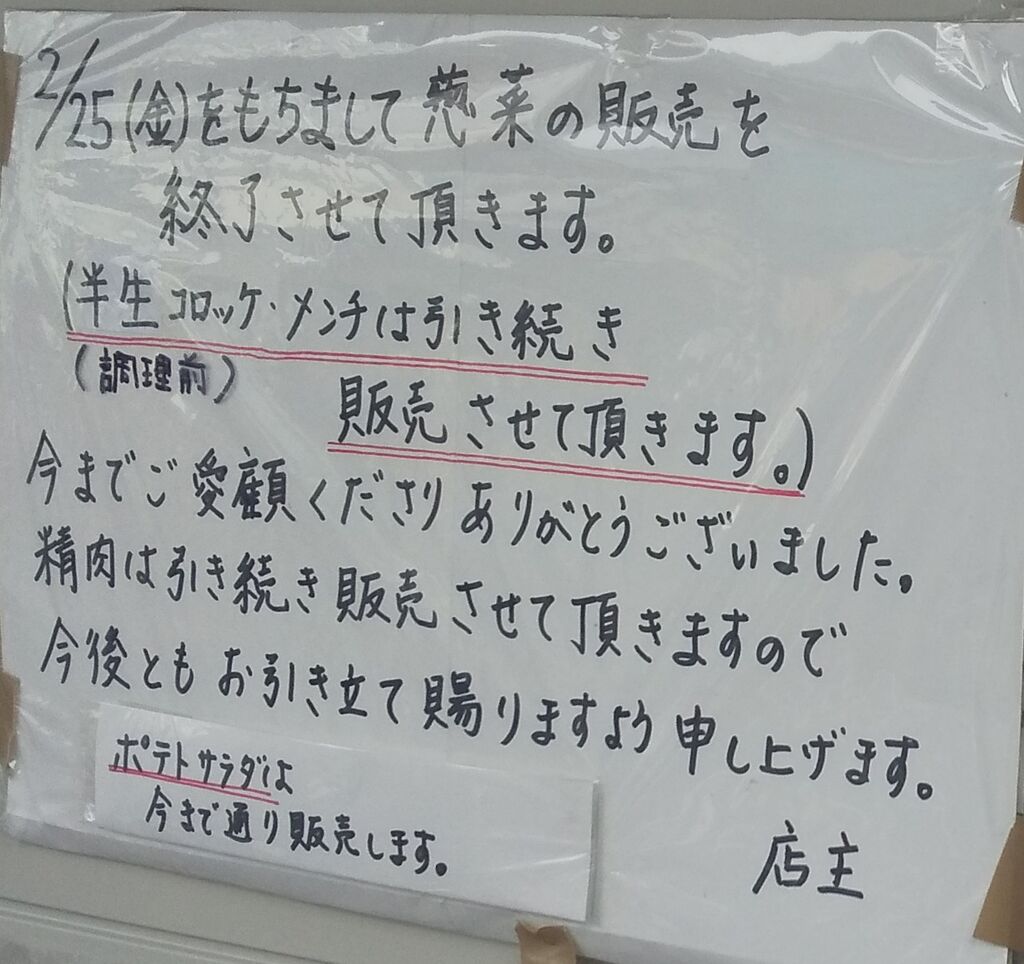 2/25(金)をもちまして惣菜の販売を
終了させて頂きます。
(半生コロッケ・メンチは引き続き
(調理前)
販売させて頂きます。)
今までご愛顧くださりありがとうございました。
精肉は引き続き販売させて頂きますので
今後ともお引き立て賜りますよう申し上げます。
ポテトサラダは
今まで通り販売します。
店主